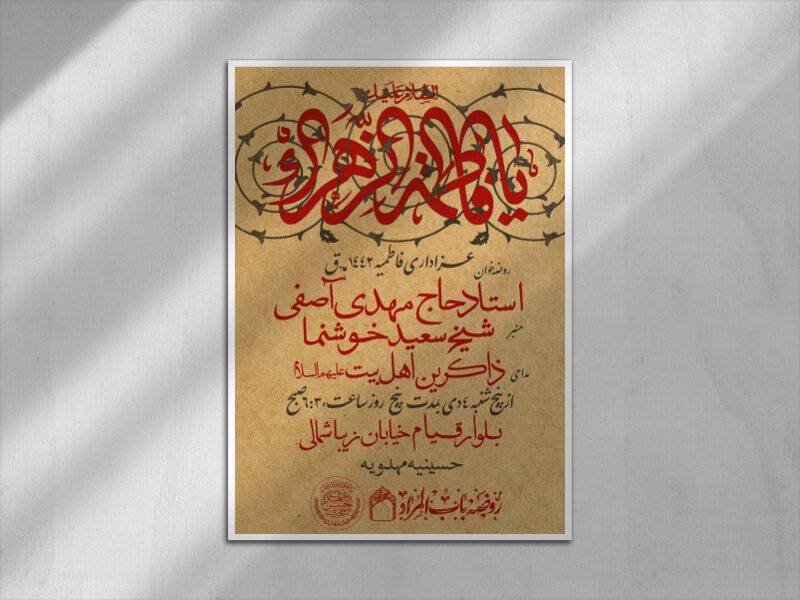 السلام علیک
یا فاطمة الزهراء
عزاداری فاطمیه ۱۴۴۲ ه.ق
روضه‌خوان
استاد حاج مهدی آصفی
منبر
شیخ سعید خوشنما
مداحی
ذاکرین اهل بیت علیهم السلام
از پنج شنبه ٤ دی بمدت پنج روز ساعت ٦:۳۰ صبح
بلوار قیام خیابان زیبا شمالی
حسینیه مهدویه
روضه باب المراد